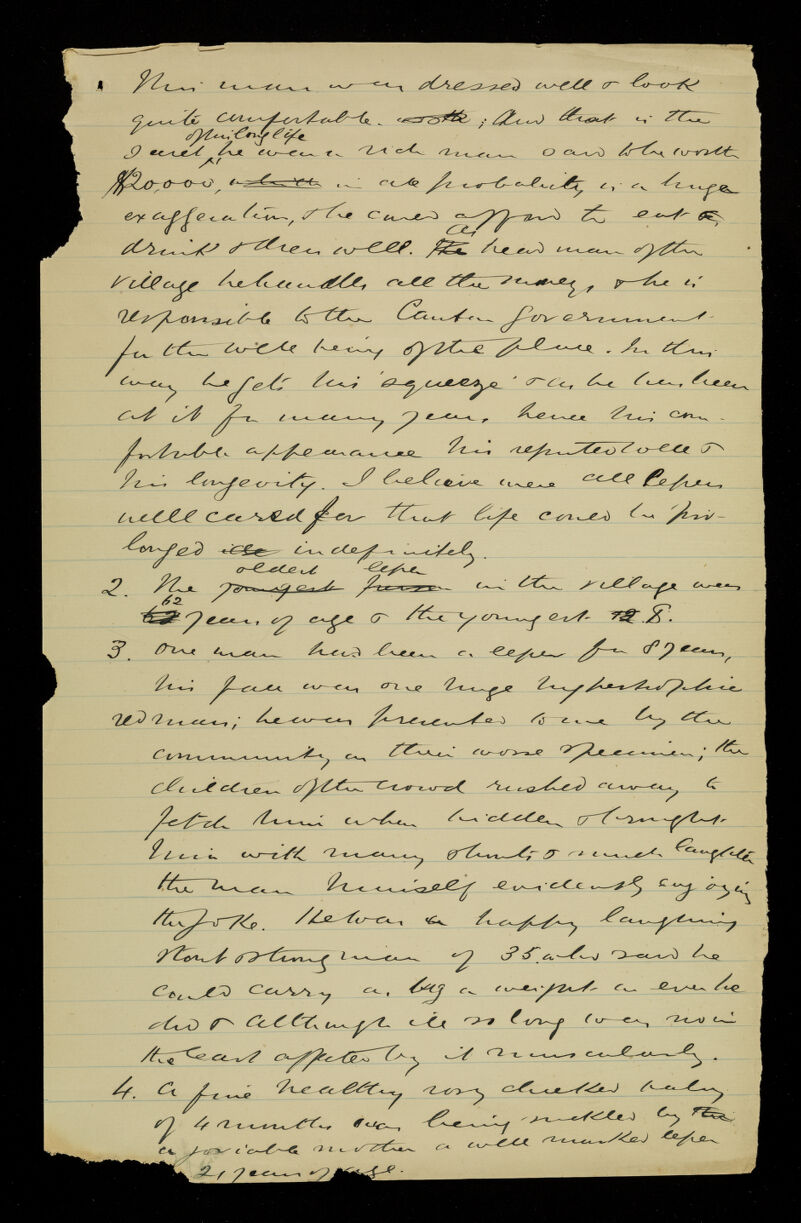 This man was dressed well & look
quite comfortable. ; And that is the
of his long life
secret, he was a rich man said to be worth
$20,000, in all probability is a huge
exaggeration, & he could afford to eat
drink & dress well. As head man of the
village he handles all the money, & he is
responsible to the Canton Government
for the well being of the place. In this
way he gets his 'squeeze' & as he has been
at it for many years hence his com-
fortable appearance his reputed wealth &
his longevity. I believe were all lepers
well cared for that life could be pro-
longed indefinitely.
oldest leper
2. The youngest person in the village was
62
years of age & the youngest 8.
3. One man had been a leper for 8 years,
his face was one huge hypertrophic
red mass; he was presented to me by the
community as their worse specimen; the
children of the crowd rushed away to
fetch him when bidden & brought
him with many shouts & much laughter
the man himself evidently enjoying
the joke. He was a happy laughing
stout strong man of 35. who said he
could carry as big a weight as ever he
did & although ill so long was no in
the least affected by it muscularly.
4. A fine healthy rosy cheeked baby
of 4 months was being suckled by the
a joviable mother a well marked leper
21 years of age.